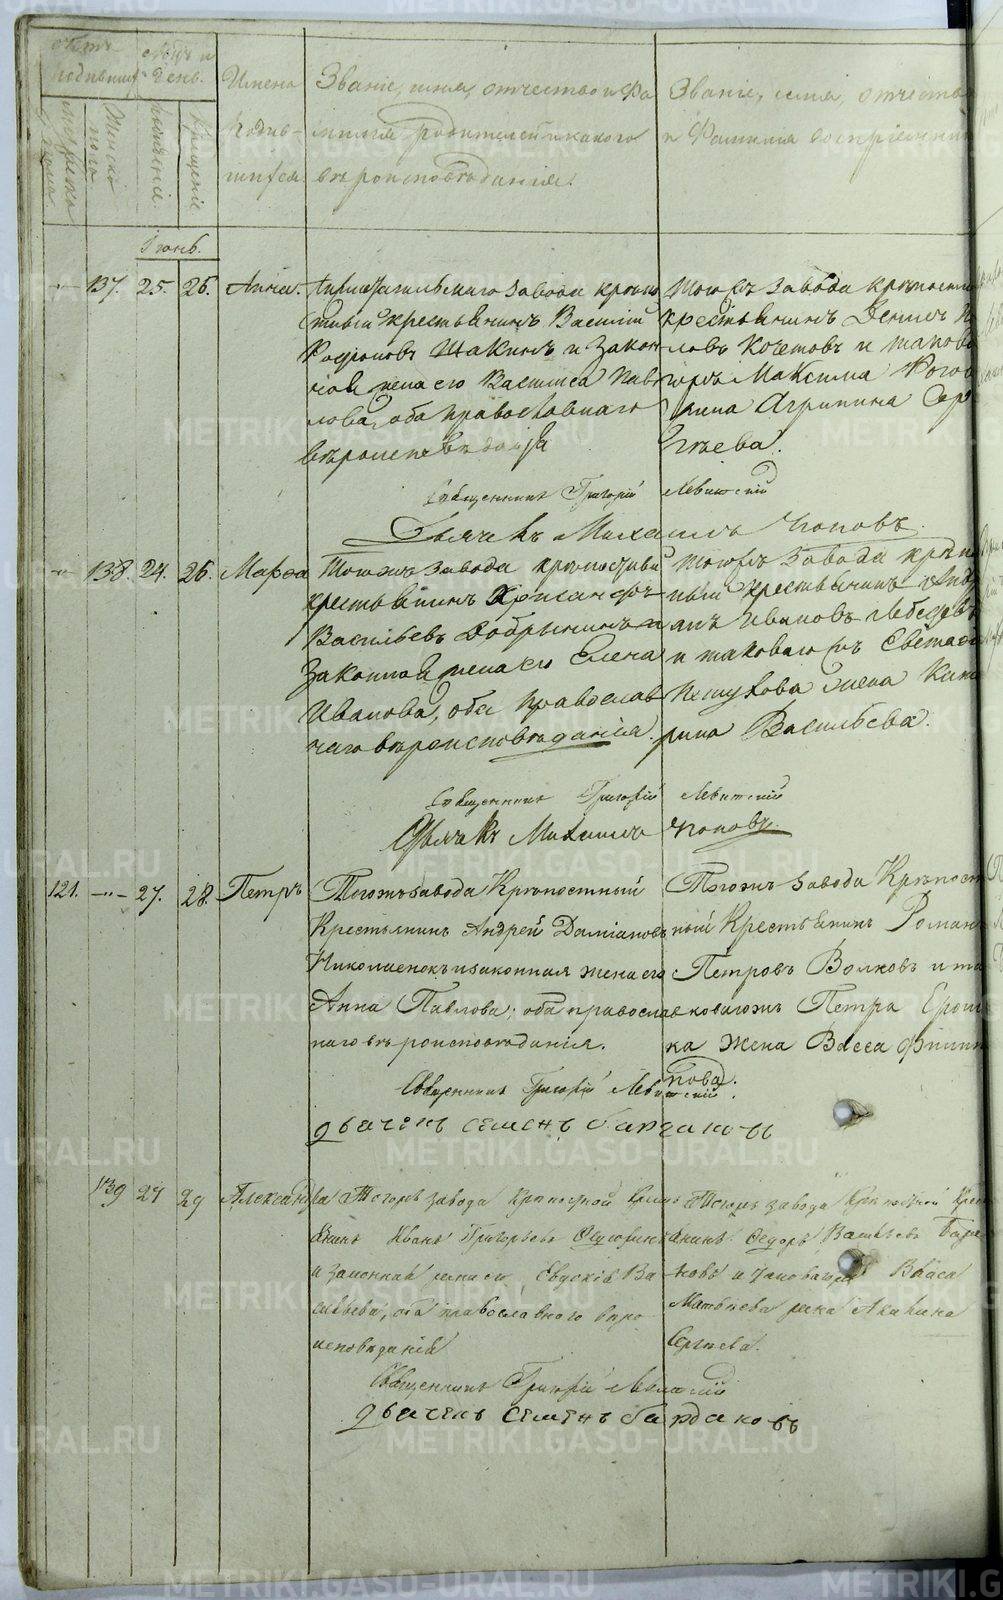 Счетъ родившихся
Мѣсяцъ и день.
мужеска пола
женска пола
рожденія.
крещенія
Имена родившихся
Званіе, имя, отчество и фамилія родителей и какого вѣроисповѣданія.
Званіе, имя, отчество и фамилія воспріемник
Іюнь.
137. 25. 26. Анна.
завода крѣпост
ный крестьянинъ Василій
Родіоновъ Шакинъ и закон
ная жена его Васлиса Пав
лова, оба православнаго
вѣроисповѣданія
Тогожъ завода крѣпостн
крестьянинъ Денисъ
ловъ Кочетовъ и таково
гожъ Максима
жена Агрипина Сер
гѣева.
Священникъ Григорій Левитскій
Дьячекъ Михаилъ Поповъ.
138. 24. 26. Марѳа
Тогожъ завода крѣпостный
крестьянинъ Хрисанфъ
Васильевъ Добрынинъ и
законная жена его Елена
Иванова, оба православ
наго вѣроисповѣданія.
Тогожъ завода крѣпост
ный крестьянинъ
Ивановъ Лебедевъ
и таковагожъ
Петухова жена Кате
рина Васильева.
Священникъ Григорій Левитскій
Дьячекъ Михаилъ Поповъ.
121. -"- 27. 28. Петръ
Тогожъ завода Крѣпостный
Крестьянинъ Андрей Даміановъ
Николаенокъ и законная жена его
Анна Павлова; оба православ
наго вѣроисповѣданія.
Тогожъ завода Крѣпост
ный Крестьянинъ Романъ
Петровъ Волковъ и та
ковагожъ Петра Ерош
ка жена Васса Филип
пова.
Священникъ Григорій Левитскій.
дьячекъ семенъ бардаковъ
139 27 29 Александра
Тогожъ завода Крѣпостной Крестья
янинъ Иванъ Григорьевъ
и законная жена его Евдокія Ва
сильева, оба православного вѣро
исповѣданія
Тогожъ завода Крѣпостной Крест
янинъ Ѳедоръ Васильевъ
ковъ и таковагожъ Власа
Матвѣева жена Акилина
Сергѣева.
Священникъ Григорій Левитскій
дьячекъ семенъ бардаковъ